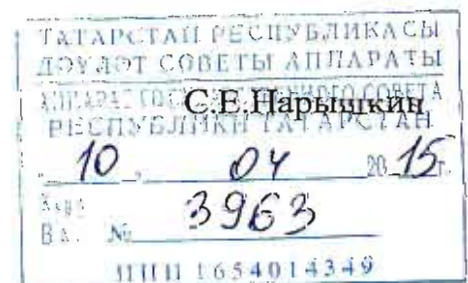 ТАТАРСТАН РЕСПУБЛИКАСЫ
ДӘҮЛӘТ СОВЕТЫ АППАРАТЫ
АППАРАТ ГОСУДАРСТВЕННОГО СОВЕТА
С.Е.Нарышкин
РЕСПУБЛИКИ ТАТАРСТАН
10 04 2015г.
Вх. № 3963
ИНН 1654014349